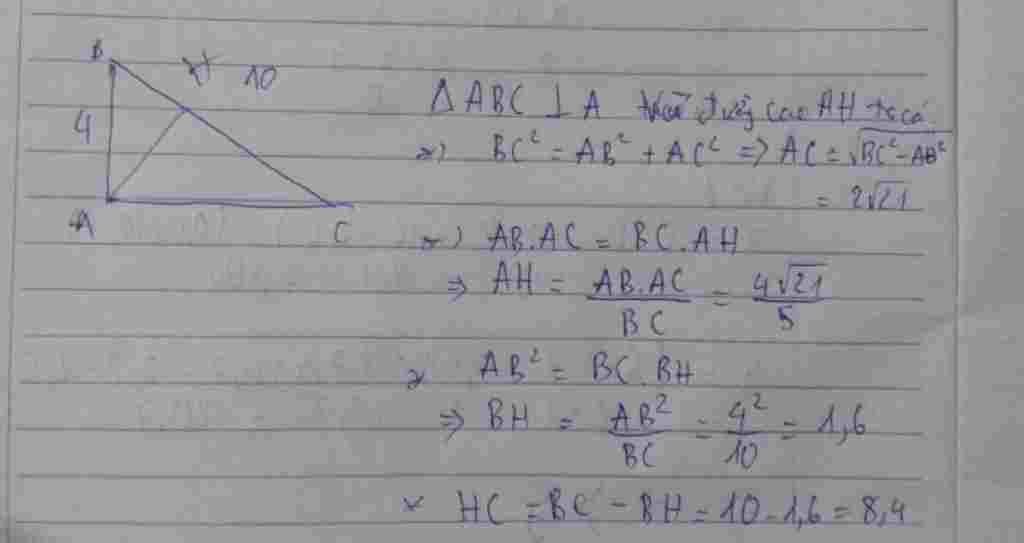 B
H
10
4
A
C
Δ ABC ⊥ A đường cao AH ta có
*) BC² = AB² + AC² => AC = √(BC² - AB²)
= 2√21
*) AB.AC = BC.AH
=> AH = AB.AC / BC = 4√21 / 5
* AB² = BC.BH
=> BH = AB² / BC = 4² / 10 = 1,6
* HC = BC - BH = 10 - 1,6 = 8,4